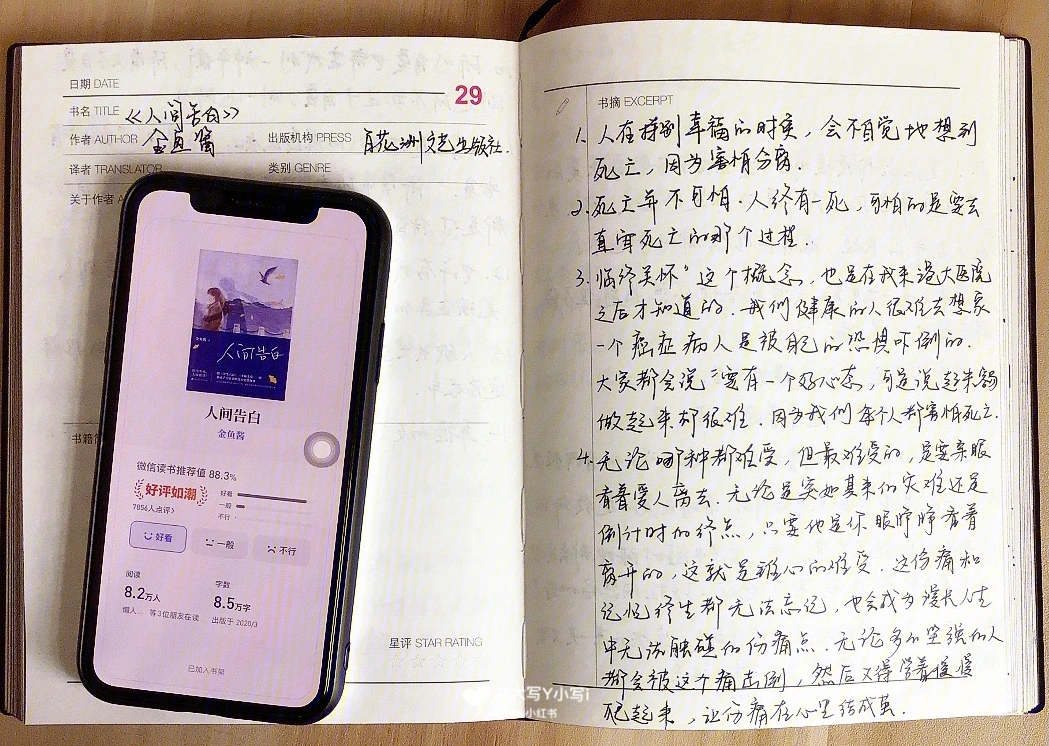 日期 DATE
29
书名 TITLE 《人间告白》
作者 AUTHOR 金鱼酱 出版机构 PRESS 百花洲文艺出版社.
译者 TRANSLATOR 类别 GENRE
关于作者 A
人间告白
人间告白
金鱼酱
微信读书推荐值 88.3%
好评如潮
7856人点评
好看
一般
不行
好看 一般 不行
阅读 字数
8.2万人 8.5万字
懒人... 等3位朋友在读 出版于 2020/3
已加入书架
书籍
星评 STAR RATING
书摘 EXCERPT
1. 人在得到幸福的时候，会不自觉地想到
死亡，因为害怕分离.
2. 死亡并不可怕.人终有一死，可怕的是要去
直面死亡的那个过程.
3. 临终关怀"这个概念，也是在我来港大医院
之后才知道的.我们健康的人很难去想象
一个癌症病人是被自己的恐惧吓倒的.
大家都会说"要有一个好心态，可是说起来容易
做起来却很难.因为我们每个人都害怕死亡.
4. 无论哪种都难受，但最难受的，是要亲眼
看着爱人离去.无论是突如其来的灾难还是
倒计时的终点，只要他是你眼睁睁看着
离开的，这就是锥心的难受.这伤痛和
记忆终生都无法忘记，也会成为漫长人生
中无法触碰的伤痛点.无论多么坚强的人
都会被这个痛击倒，然后又得学着慢慢
爬起来，让伤痛在心里结成茧.
大写Y小写i
小红书